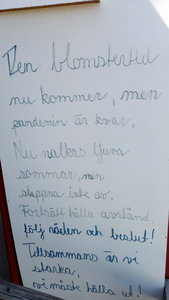 Den blomstertid
nu kommer, men
pandemin är kvar,
Nu nalkas ljuva
sommar, men
släppna inte av.
Fortsätt hålla avstånd,
följ råden och beslut!
Tillsammans är vi
starka,
vi måste hålla ut!